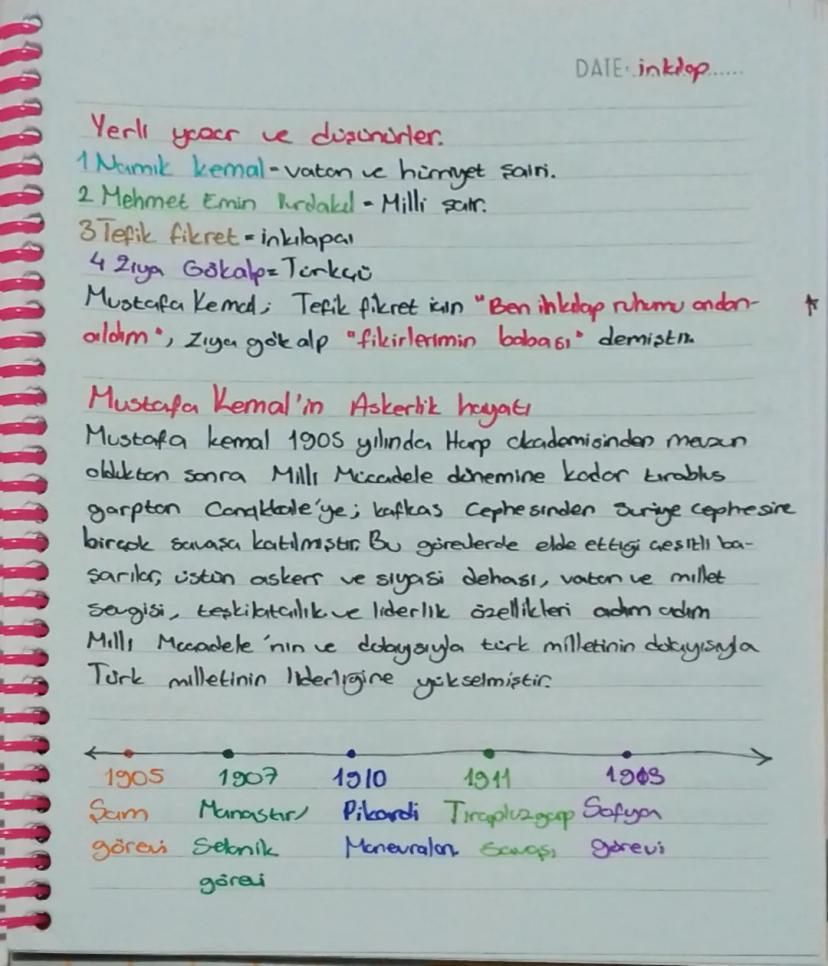 DATE: inkılap......
Yerli yazar ve düşünürler.
1 Namık kemal - vatan ve hürriyet şairi.
2 Mehmet Emin Yurdakul - Milli şair.
3 Tefik fikret = inkılapçı
4 Ziya Gökalp = Türkçü
Mustafa Kemal; Tefik fikret için "Ben inkılap ruhumu ondan-
aldım", Ziya gökalp "fikirlerimin babası" demiştir.
Mustafa Kemal'in Askerlik hayatı
Mustafa kemal 1905 yılında Harp akademisinden mezun
olduktan sonra Milli Mücadele dönemine kadar tırablus
garptan Çanakkale'ye; kafkas Cephesinden Suriye cephesine
birçok savaşa katılmıştır. Bu görevlerde elde ettiği çeşitli ba-
şarılar, üstün askeri ve siyasi dehası, vatan ve millet
sevgisi, teşkilatçılık ve liderlik özellikleri adım adım
Milli Mücadele'nin ve dolayısıyla türk milletinin dolayısıyla
Türk milletinin liderliğine yükselmiştir.
1905 1907 1910 1911 1913
Şam Manastır/ Pikardi Tıraplusgarp Sofyon
görevi Selanik Manevraları Savaşı görevi
görevi